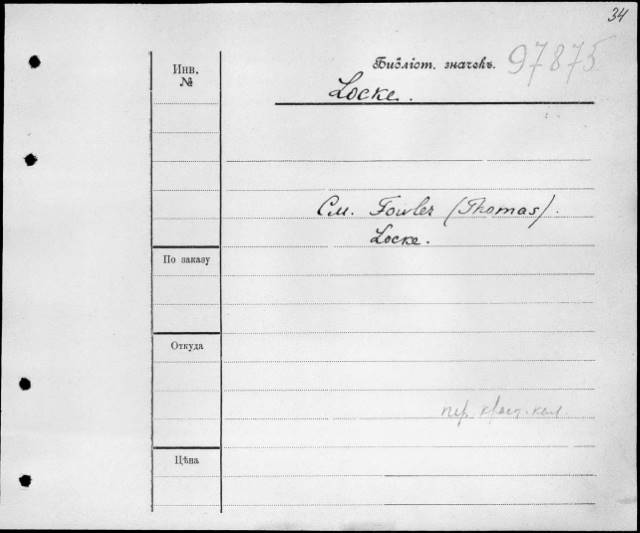 34
Инв.
№
Библіот. значекъ. 97875
Locke.
См. Fowler (Thomas).
Locke.
По заказу
Откуда
Цѣна